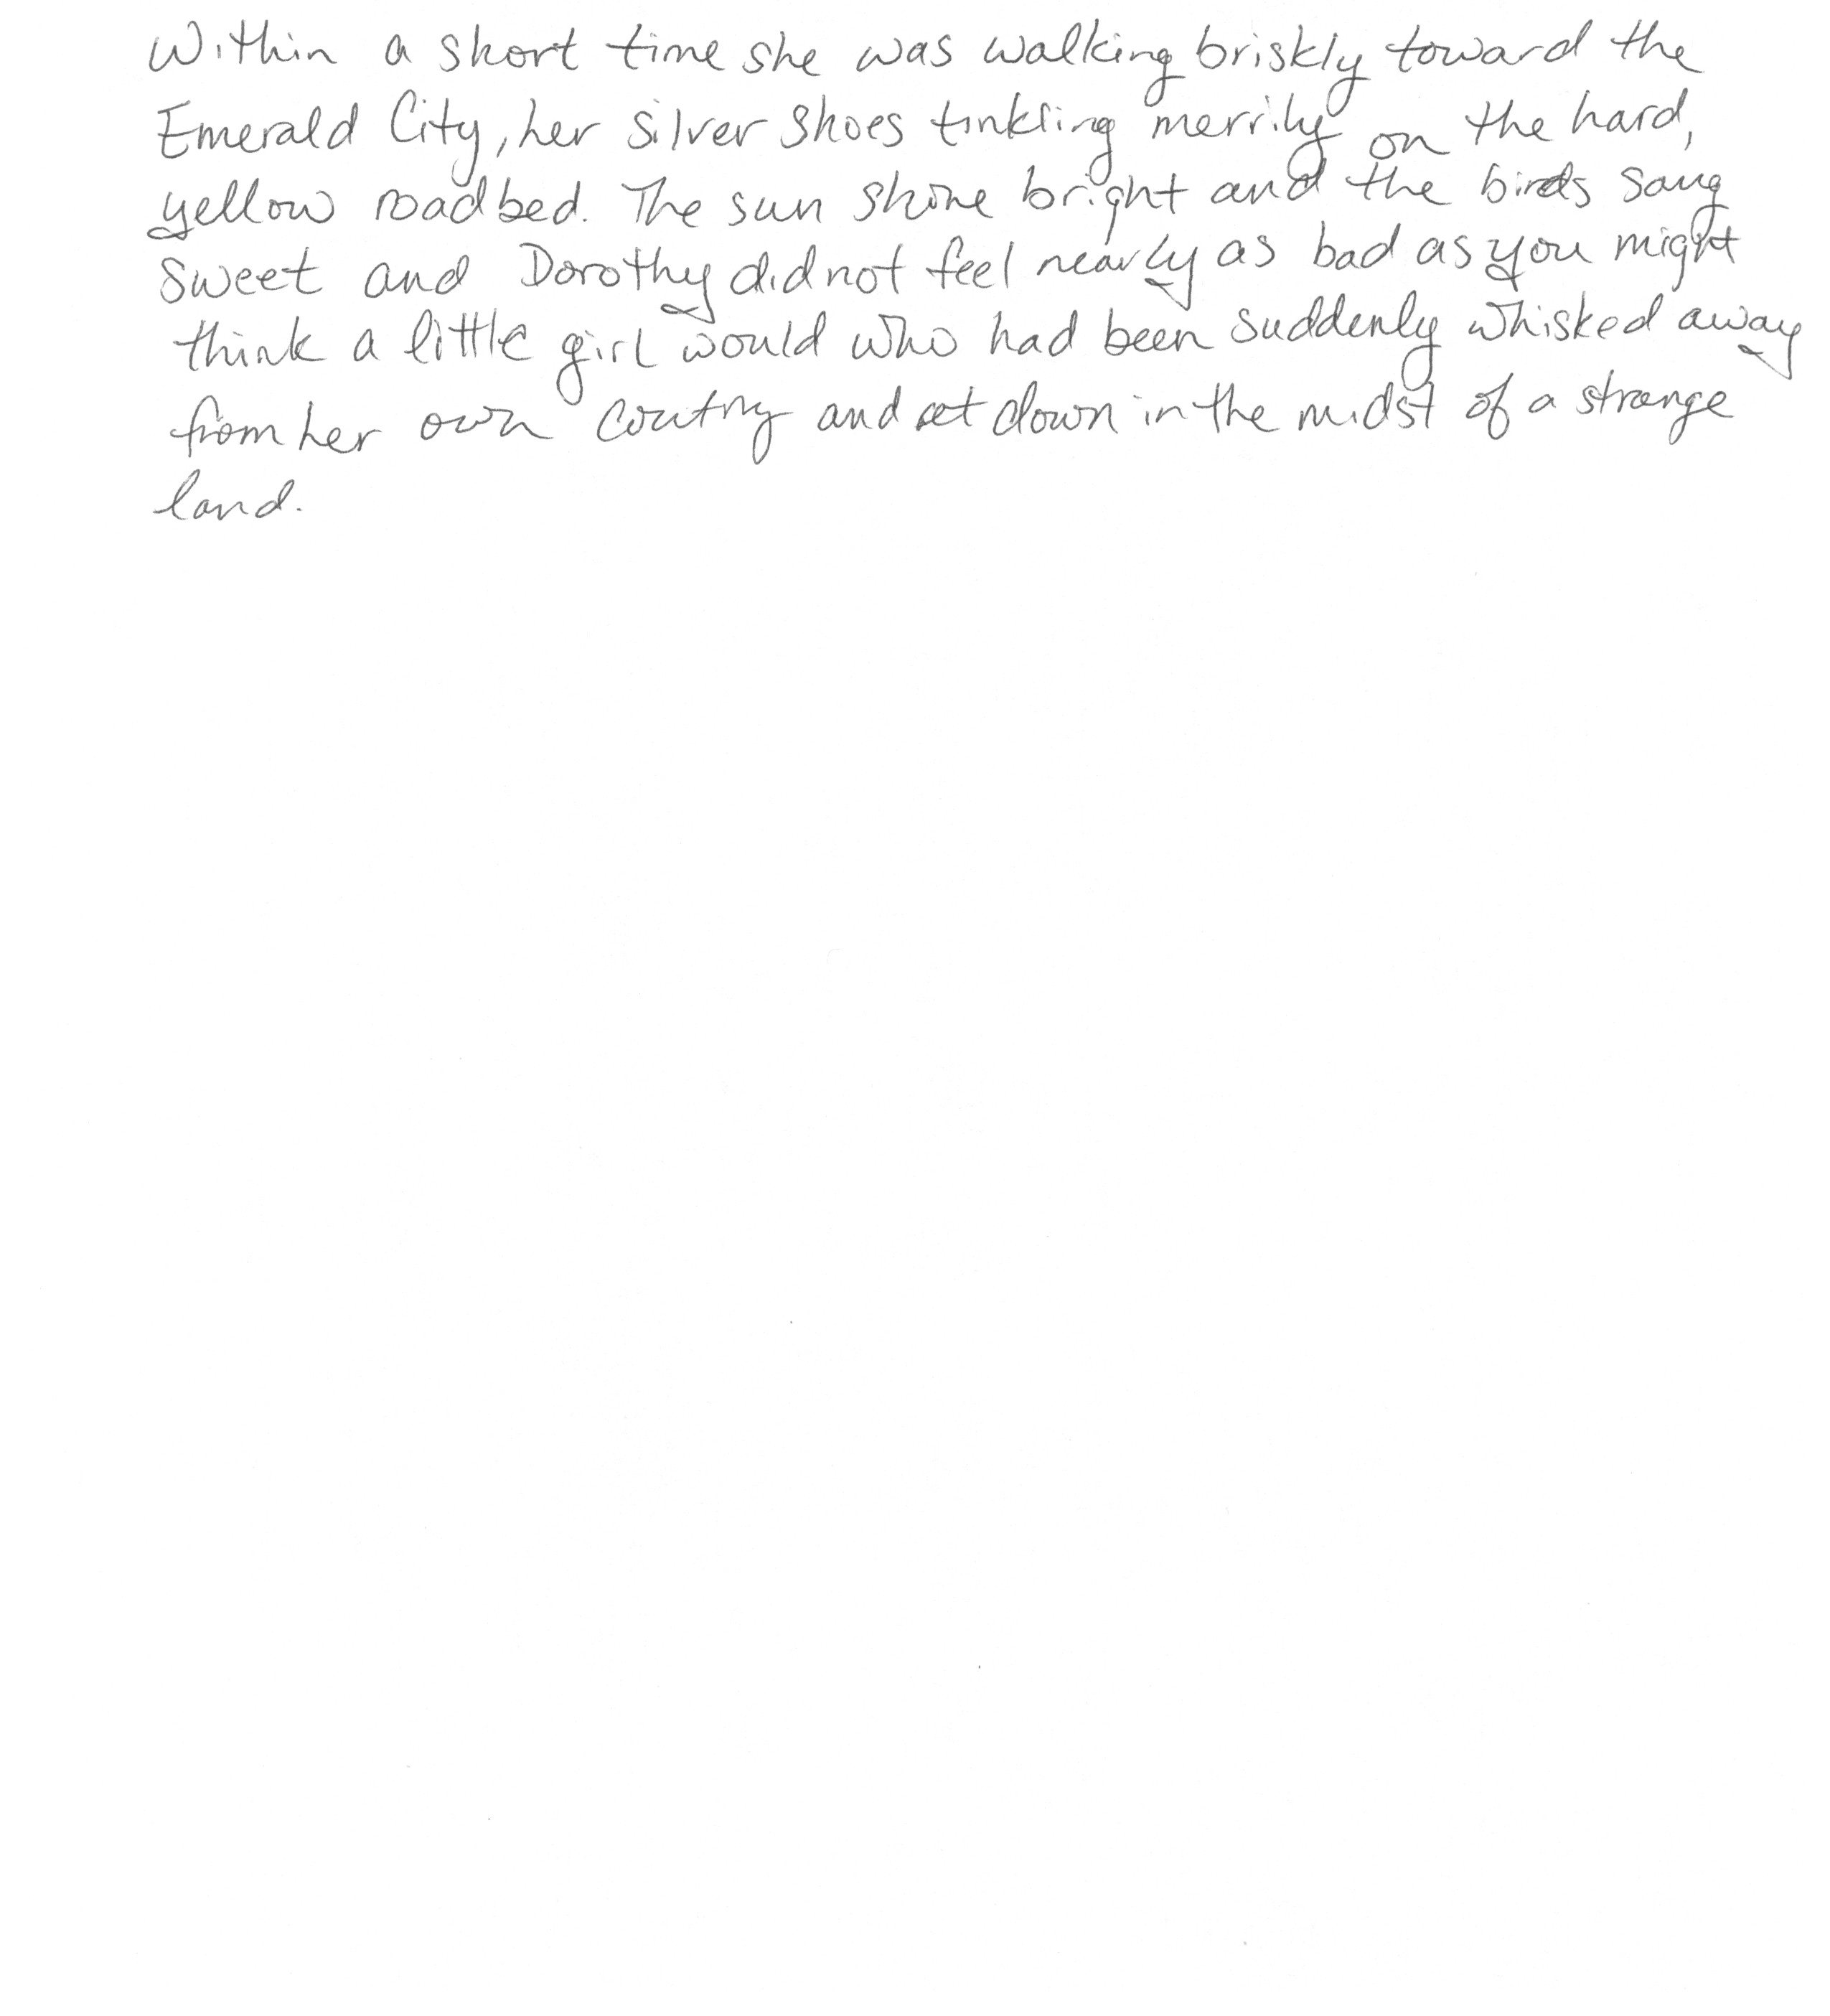 Within a short time she was walking briskly toward the
Emerald City, her silver shoes tinkling merrily on the hard,
yellow roadbed. The sun shone bright and the birds sang
sweet and Dorothy did not feel nearly as bad as you might
think a little girl would who had been suddenly whisked away
from her own coutry and set down in the midst of a strange
land.